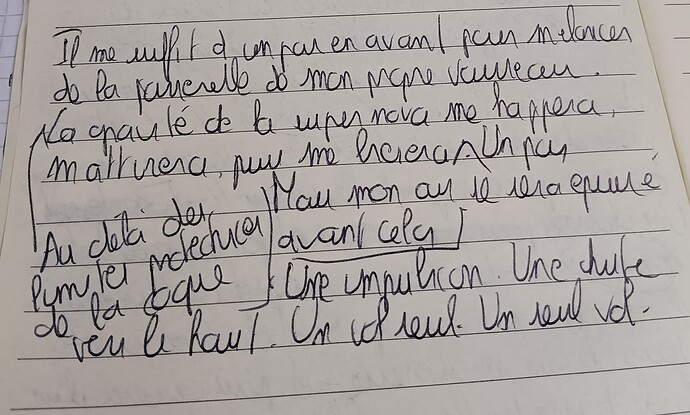 Il me suffit d'un pas en avant pour m'élancer
de la passerelle de mon propre vaisseau.
La gravité de la supernova me happera,
m'attirera, puis me broiera. Un pas,
Mais mon air se sera épuisé
avant cela
Au délà des
limites protectrices
de la coque
Une impulsion. Une chute
vers le haut. Un vol seul. Un seul vol.